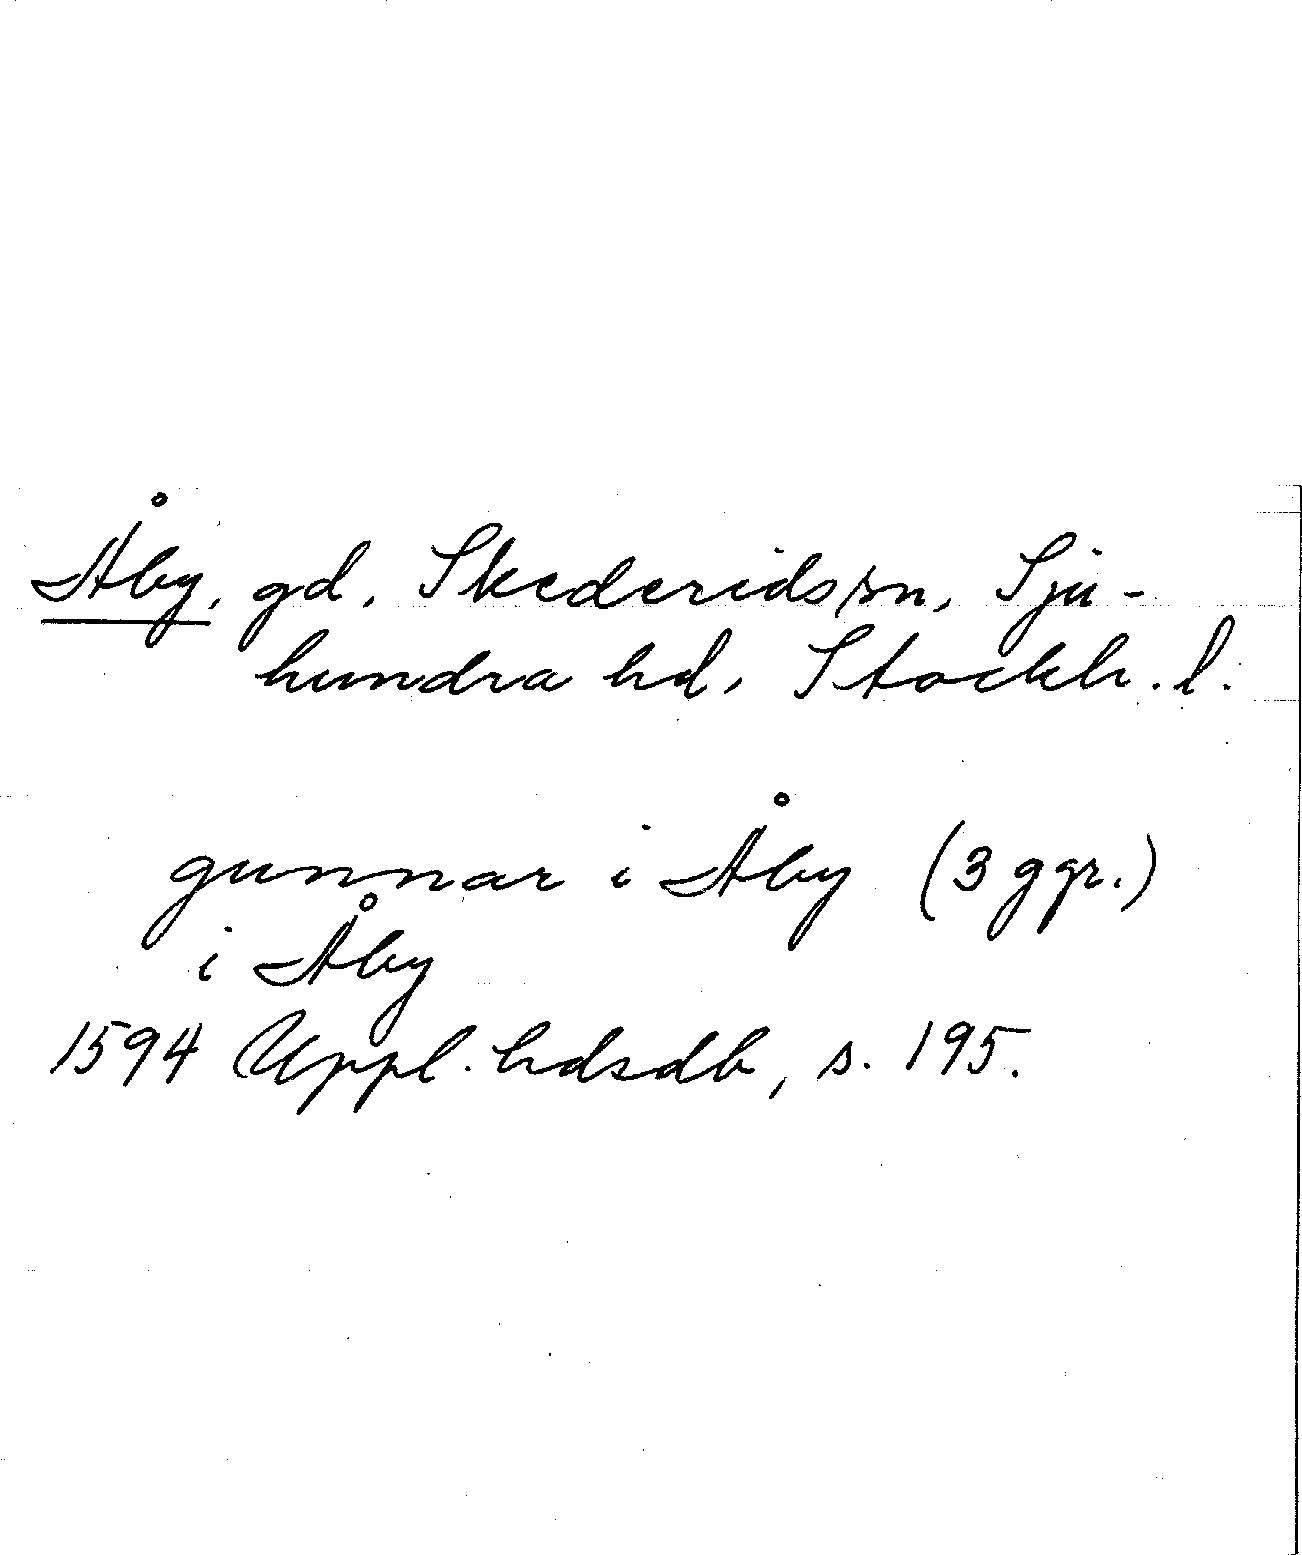 Åby, gd, Skederids sn, Sju-
hundra hd, Stockh. l.
gunnar i Åby (3 ggr.)
i Åby
1594 Uppl. hdsdb, s. 195.